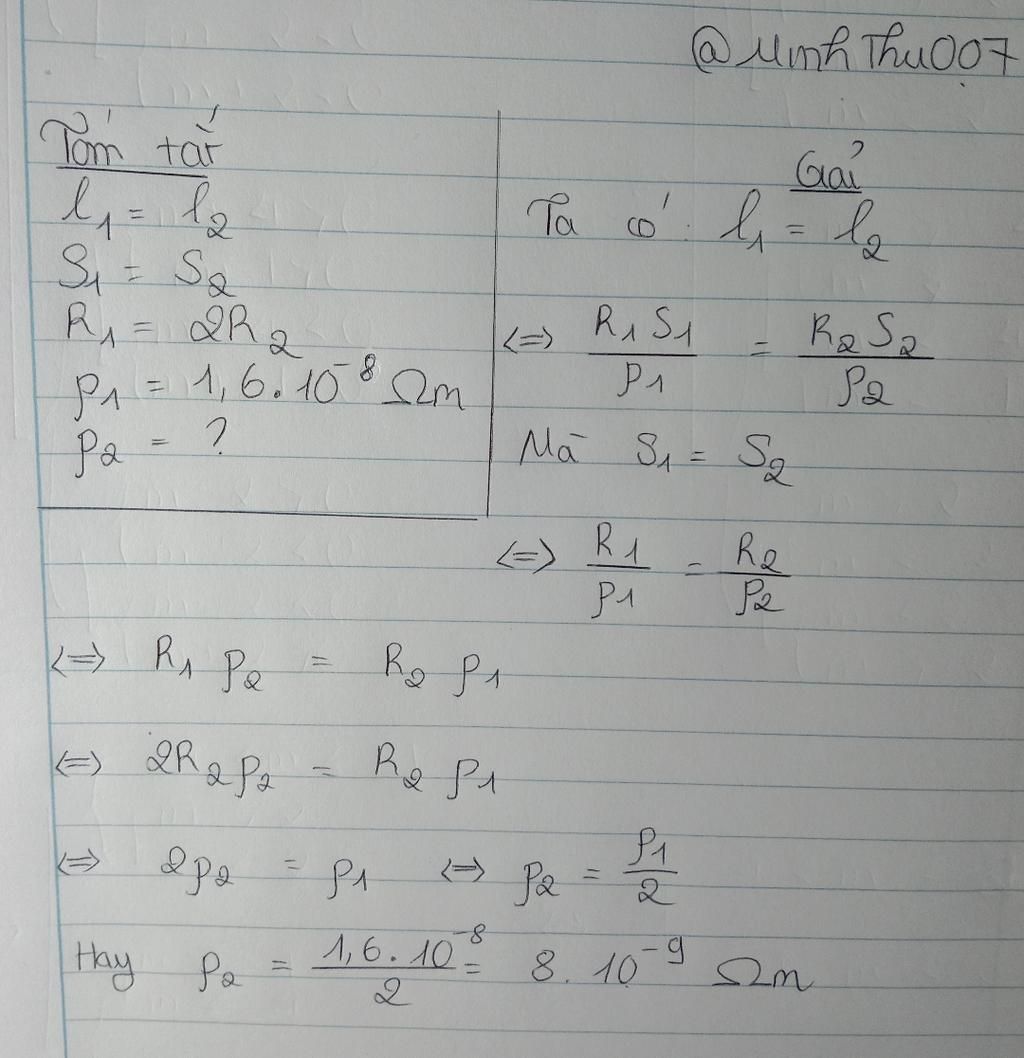 @MinhThu007
Tóm tắt
l₁ = l₂
S₁ = S₂
R₁ = 2R₂
ρ₁ = 1,6.10⁻⁸ Ωm
ρ₂ = ?
Giải
Ta có: l₁ = l₂
<=> R₁S₁/ρ₁ = R₂S₂/ρ₂
Mà S₁ = S₂
<=> R₁/ρ₁ = R₂/ρ₂
<=> R₁ρ₂ = R₂ρ₁
<=> 2R₂ρ₂ = R₂ρ₁
<=> 2ρ₂ = ρ₁ <=> ρ₂ = ρ₁/2
Hay ρ₂ = 1,6.10⁻⁸/2 = 8.10⁻⁹ Ωm